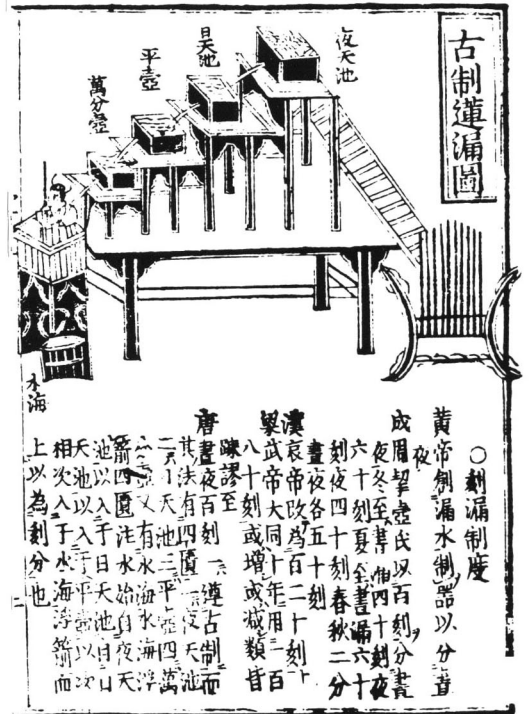 古制蓮漏圖
夜天池
日天池
平壺
萬分壺
水海
○刻漏制度
黃帝創漏水制器以分晝
夜
成周挈壺氏以百刻分晝
夜冬至晝漏四十刻夜
六十刻夏至晝漏六十
刻夜四十刻春秋二分
晝夜各五十刻
漢哀帝改為百二十刻
梁武帝大同十年用一百
八十刻或增或減類皆
疎謬至
唐晝夜百刻一遵古制而
其法有四匱一夜天池
二日天池三平壺四萬
分壺又有水海水海浮
箭四匱注水始自夜天
池以入于日天池自日
天池以入于平壺以次
相次入于水海浮箭而
上以為刻分也